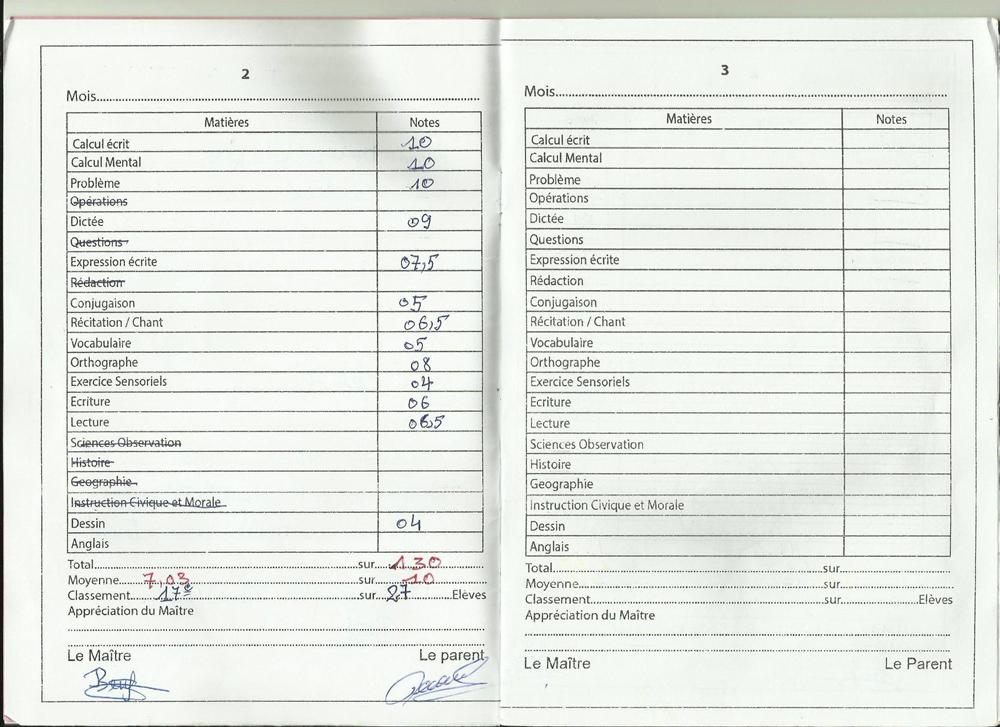 2
Mois
Matières Notes
Calcul écrit 10
Calcul Mental 10
Problème 10
Opérations
Dictée 09
Questions
Expression écrite 07,5
Rédaction
Conjugaison 05
Récitation / Chant 06,5
Vocabulaire 05
Orthographe 08
Exercice Sensoriels 04
Ecriture 06
Lecture 06,5
Sciences Observation
Histoire
Geographie
Instruction Civique et Morale
Dessin 04
Anglais
Total sur 130
Moyenne 7,03 sur 10
Classement 17e sur 27 Elèves
Appréciation du Maître
Le Maître Le parent
3
Mois
Matières Notes
Calcul écrit
Calcul Mental
Problème
Opérations
Dictée
Questions
Expression écrite
Rédaction
Conjugaison
Récitation / Chant
Vocabulaire
Orthographe
Exercice Sensoriels
Ecriture
Lecture
Sciences Observation
Histoire
Geographie
Instruction Civique et Morale
Dessin
Anglais
Total sur
Moyenne sur
Classement sur Elèves
Appréciation du Maître
Le Maître Le Parent